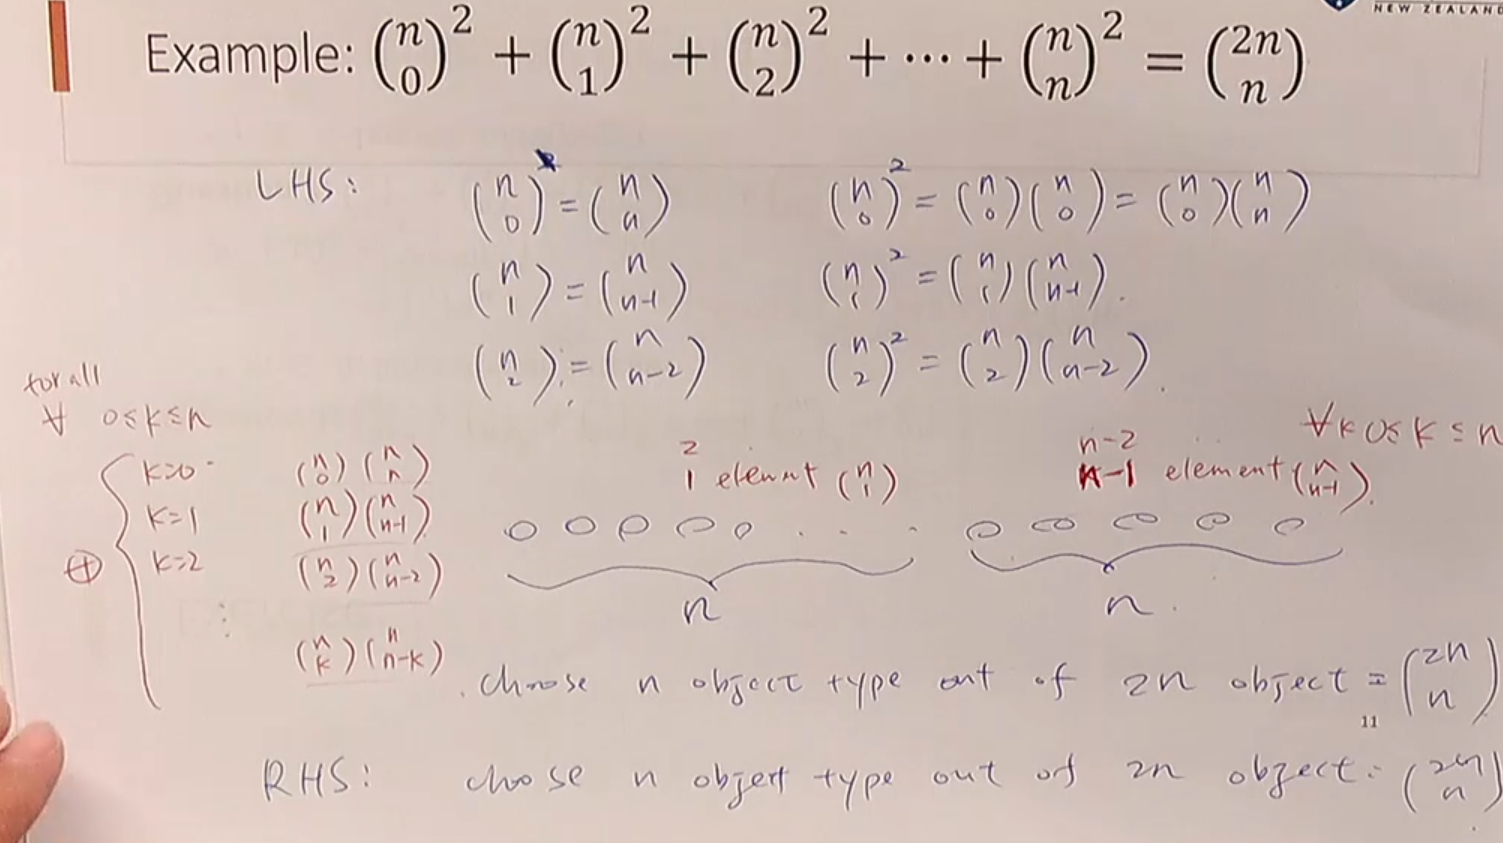 NEW ZEALAND
Example: (n 0)² + (n 1)² + (n 2)² + ⋯ + (n n)² = (2n n)
LHS: (n 0) = (n n) (n 0)² = (n 0)(n 0) = (n 0)(n n)
(n 1) = (n n-1) (n 1)² = (n 1)(n n-1).
(n 2) = (n n-2) (n 2)² = (n 2)(n n-2).
for all
∀ 0≤k≤n ∀k 0≤k≤n
2 n-2
k=0 (n 0)(n n) 1 element (n 1) n-1 element (n n-1).
k=1 (n 1)(n n-1)
⊕ k=2 (n 2)(n n-2)
n n
(n k)(n n-k)
choose n object type out of 2n object = (2n n)
11
RHS: choose n object type out of 2n object = (2n n)